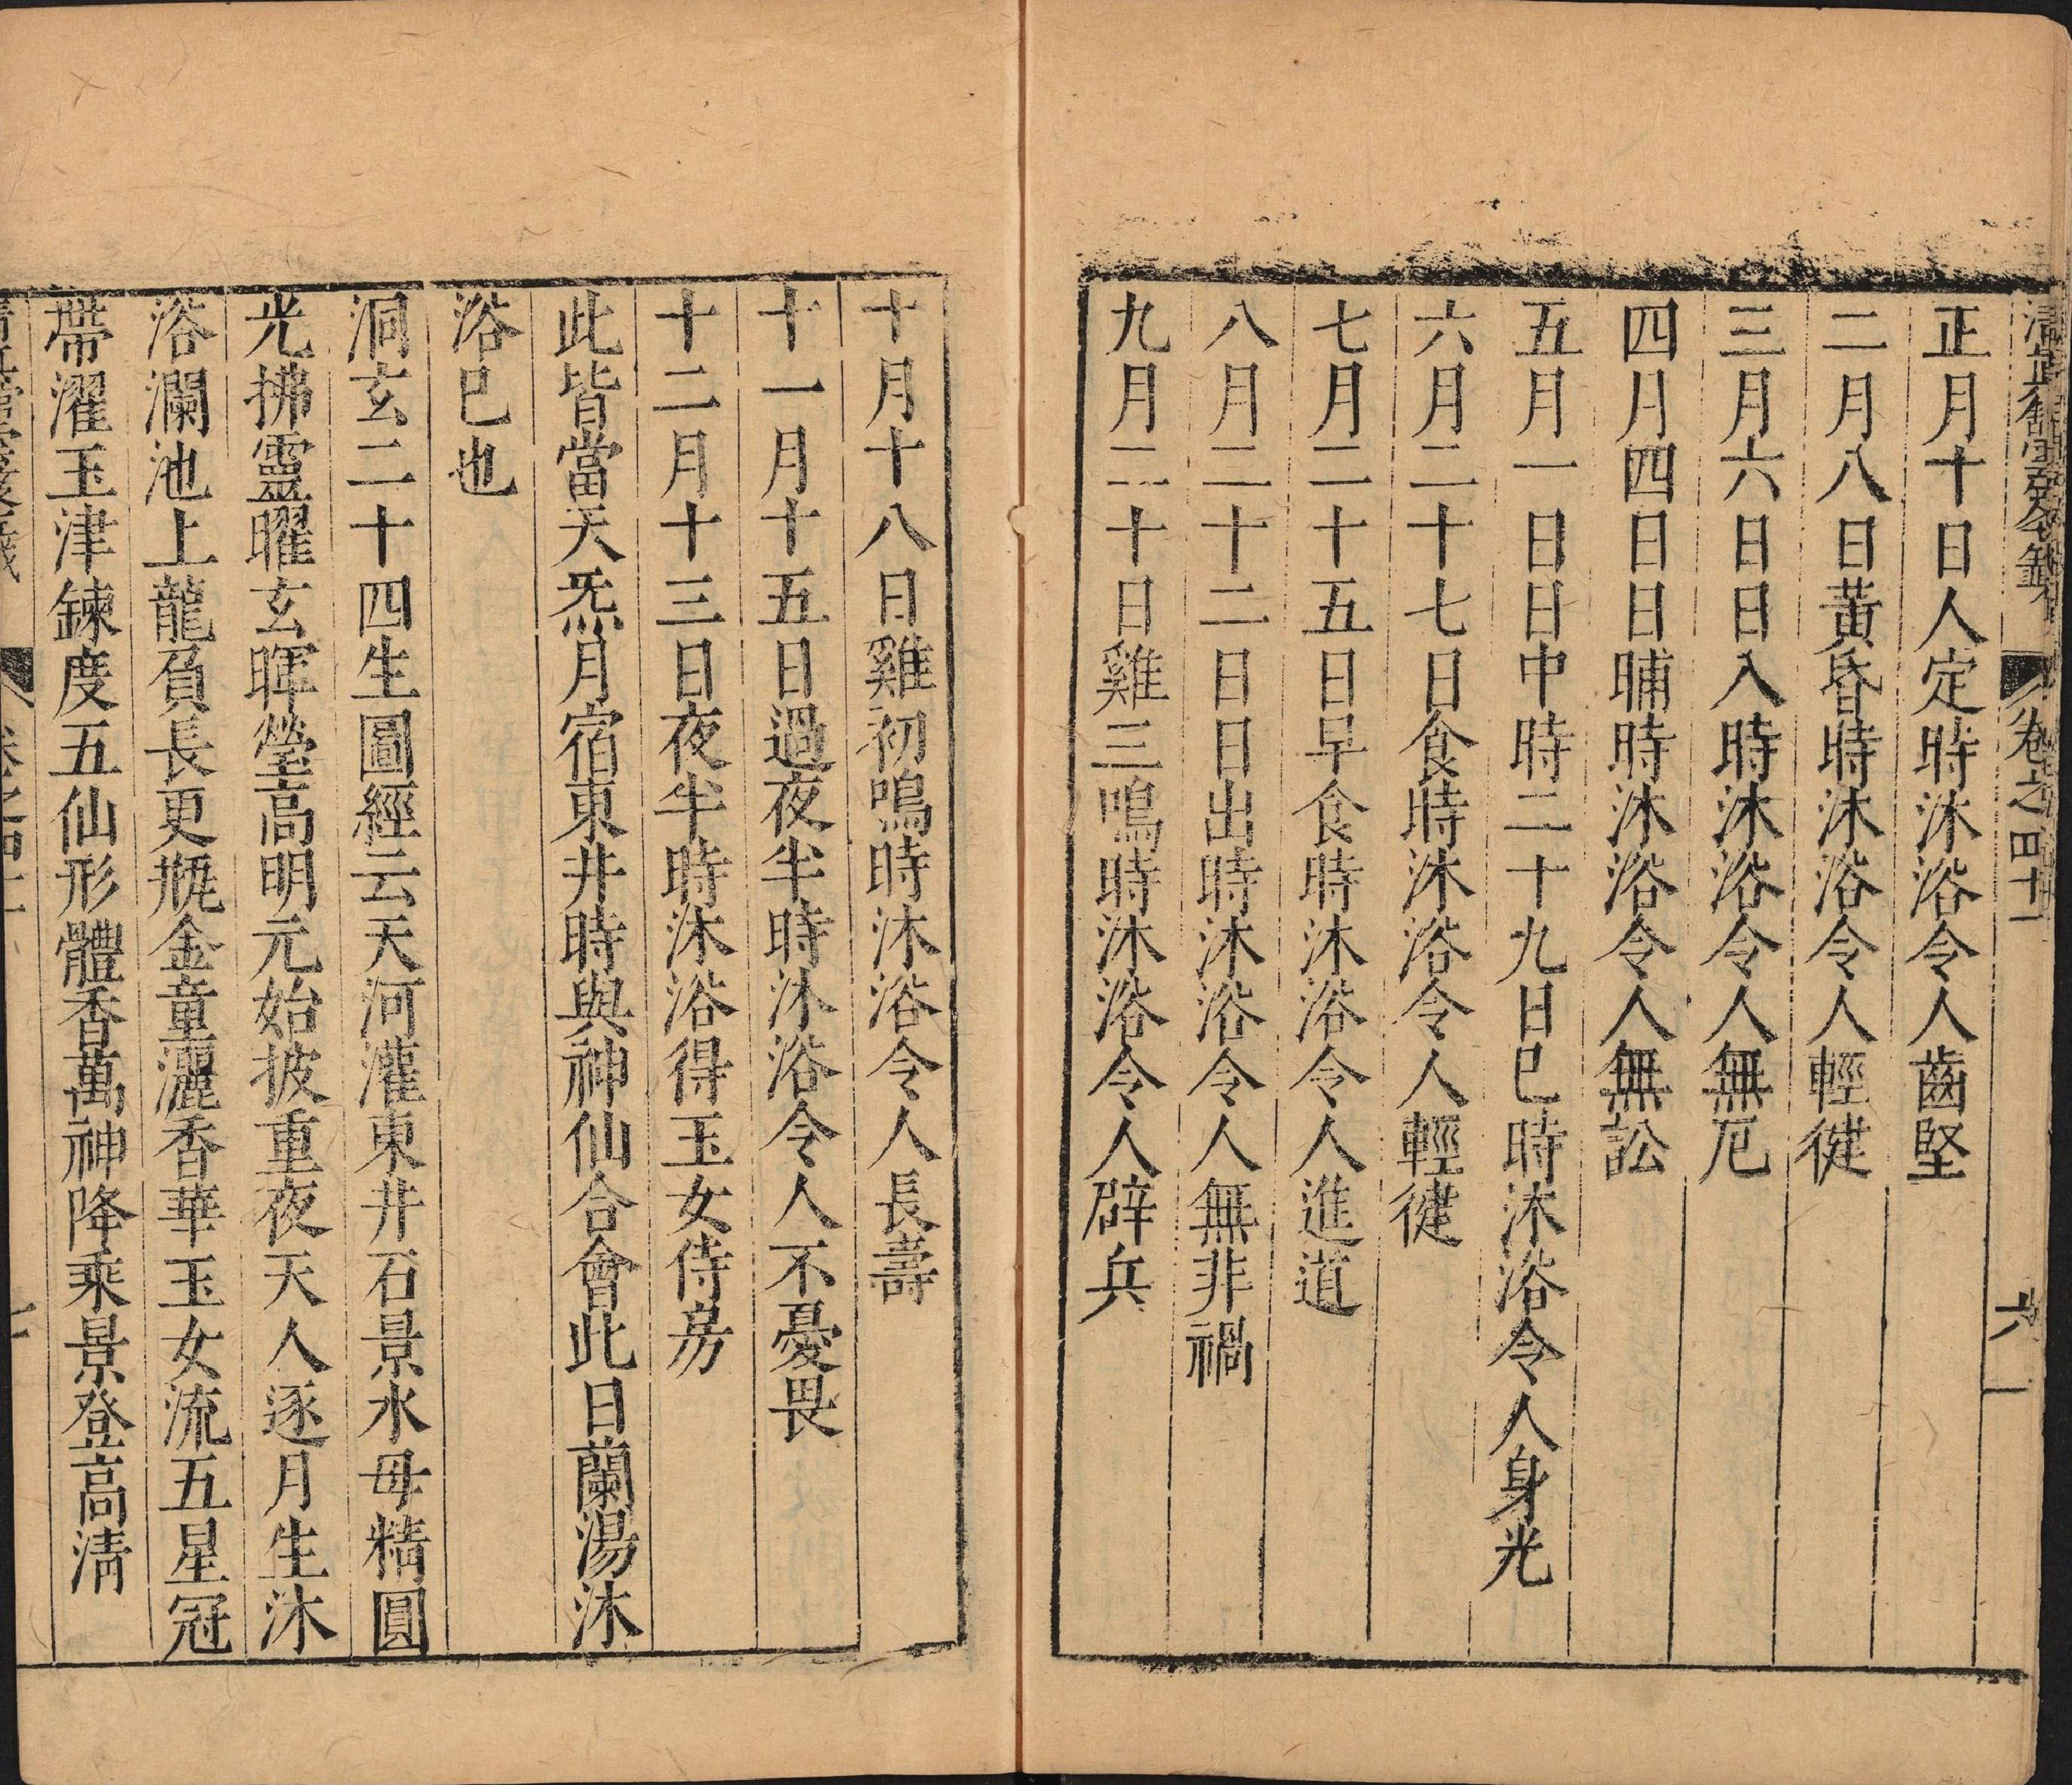 卷之四十一
六
正月十日人定時沐浴令人齒堅
二月八日黃昏時沐浴令人輕徤
三月六日日入時沐浴令人無厄
四月四日日晡時沐浴令人無訟
五月一日日中時二十九日巳時沐浴令人身光
六月二十七日食時沐浴令人輕徤
七月二十五日早食時沐浴令人進道
八月二十二日日出時沐浴令人無非禍
九月二十日雞三鳴時沐浴令人辟兵
十月十八日雞初鳴時沐浴令人長壽
十一月十五日過夜半時沐浴令人不憂畏
十二月十三日夜半時沐浴得玉女侍房
此皆當天炁月宿東井時與神仙合會此日蘭湯沐
浴巳也
洞玄二十四生圖經云天河灌東井石景水母精圓
光拂靈曜玄暉瑩高明元始披重夜天人逐月生沐
浴瀾池上龍負長更瓶金童灑香華玉女流五星冠
帶濯玉津鍊度五仙形體香萬神降乘景登高清